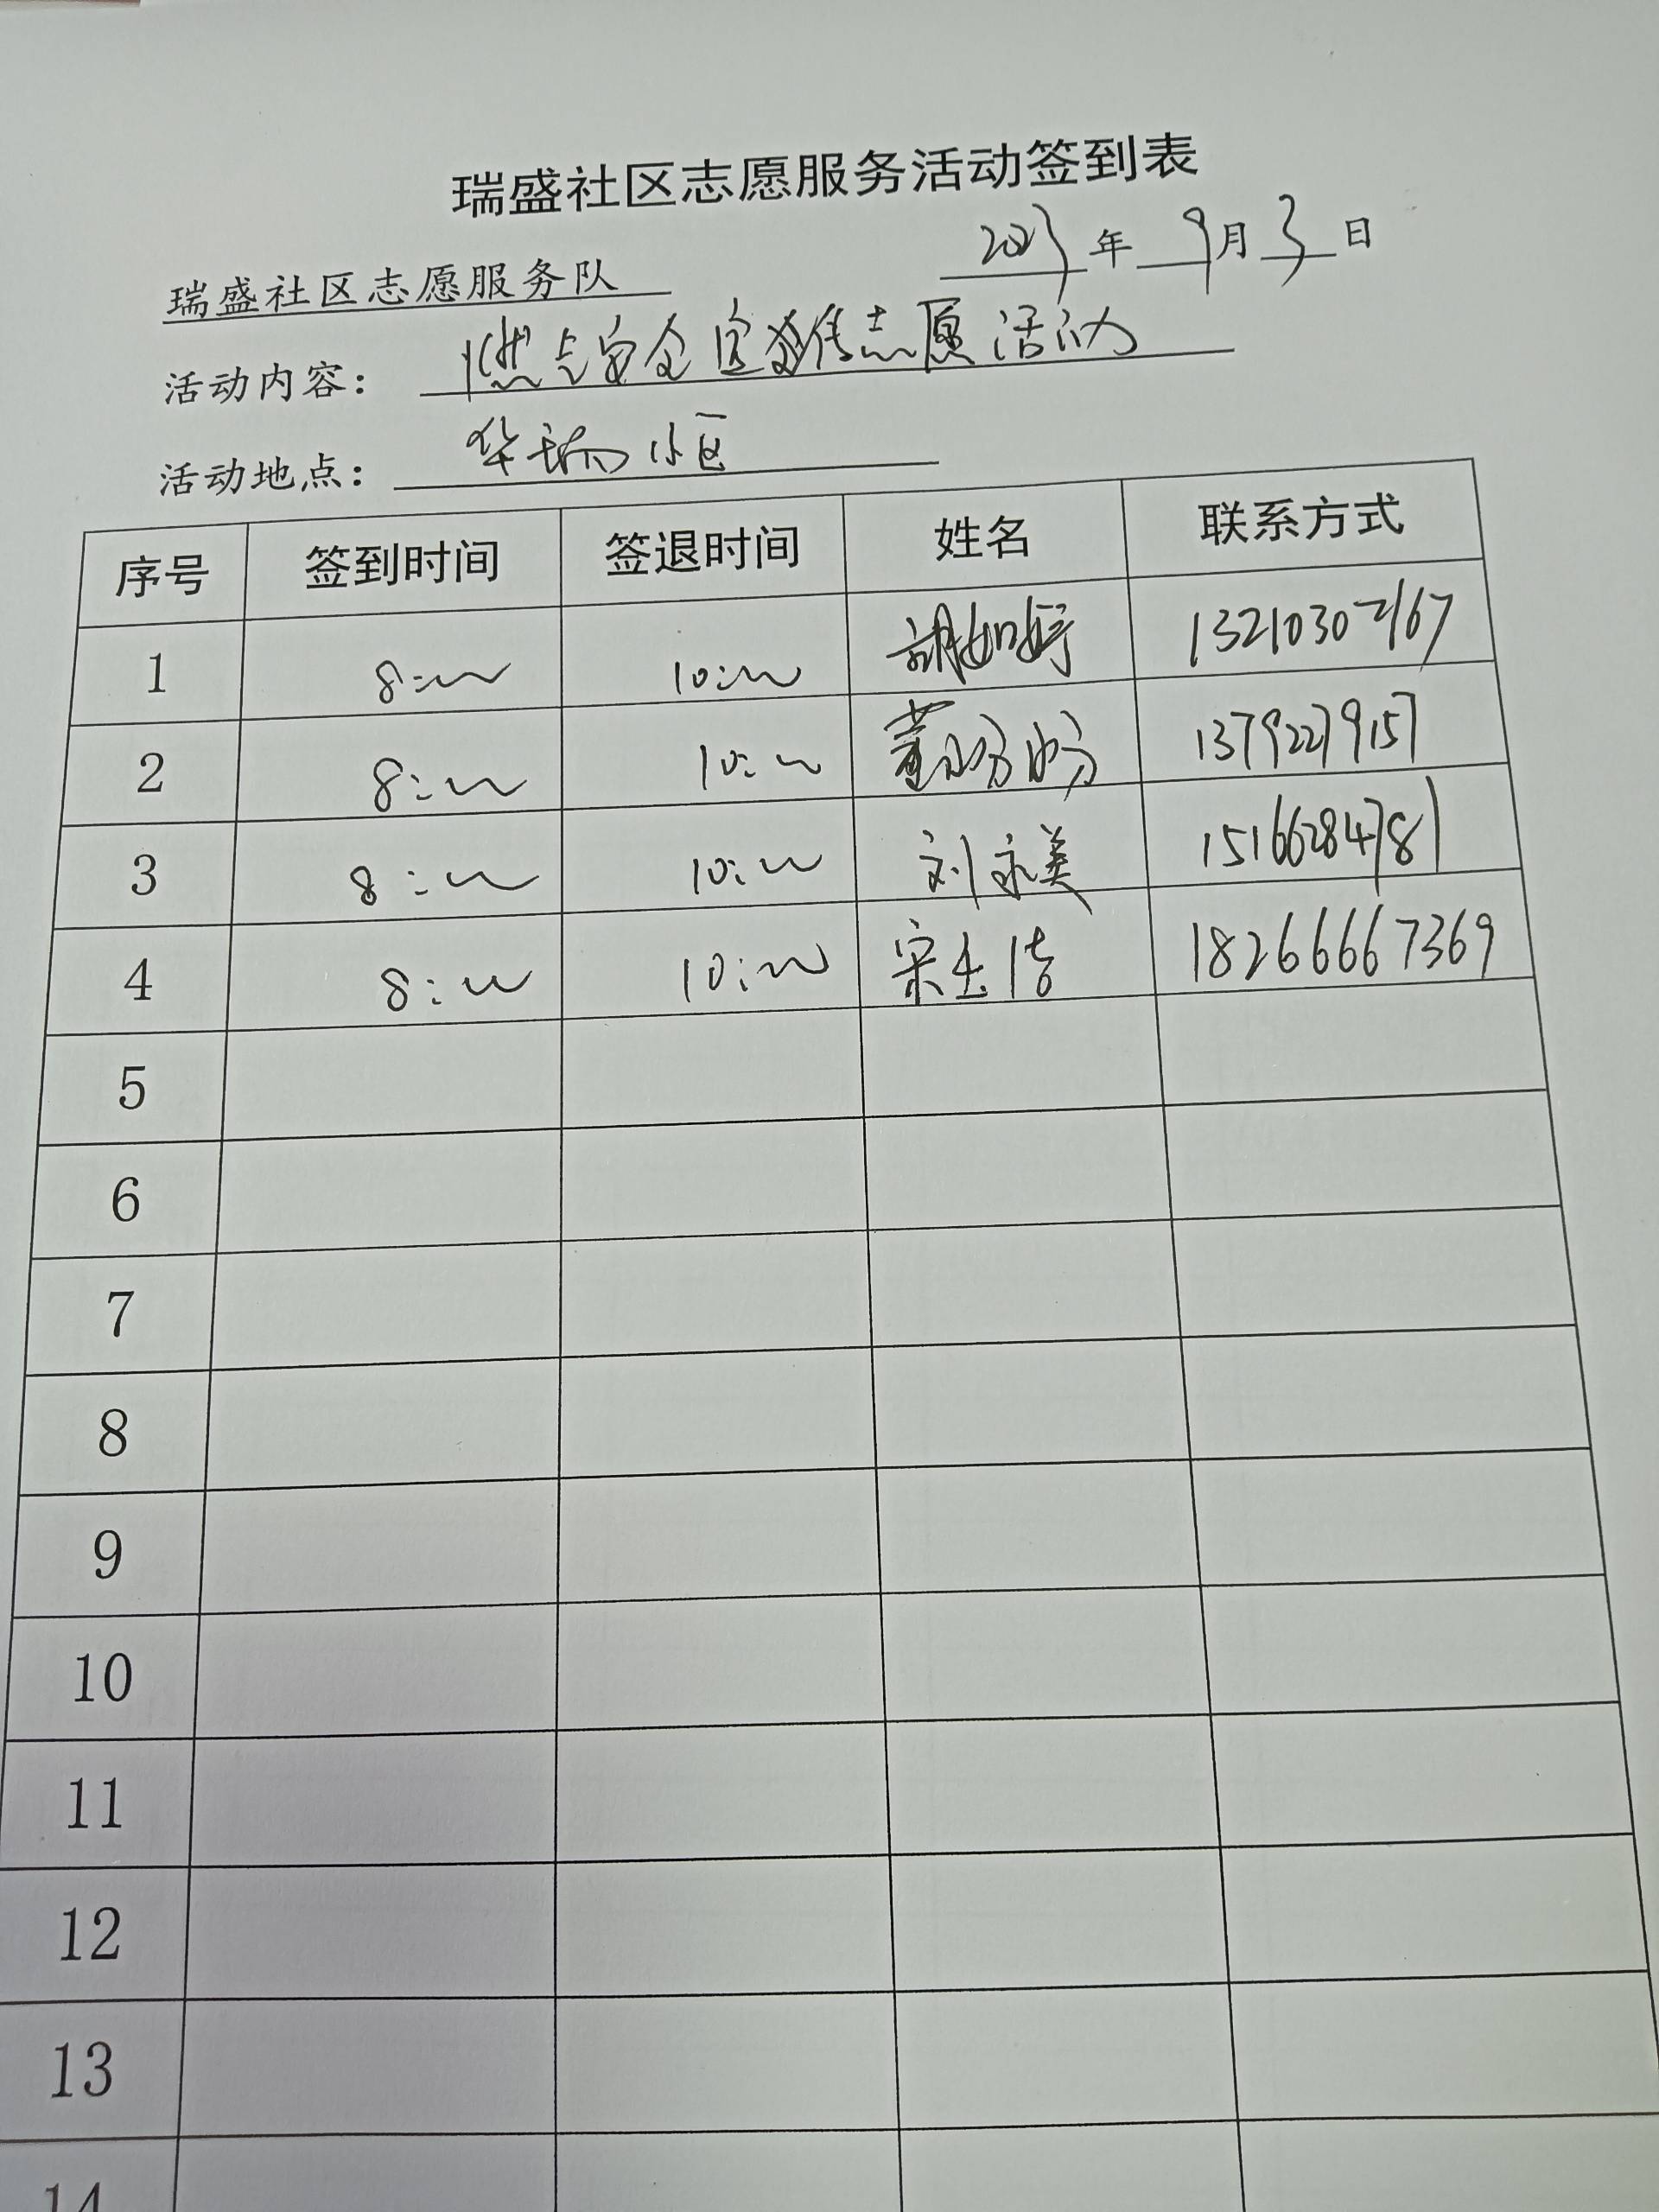 瑞盛社区志愿服务活动签到表
瑞盛社区志愿服务队 2023年 9月3日
活动内容: 燃气安全宣传志愿活动
活动地点: 华瑞小区
序号 签到时间 签退时间 姓名 联系方式
1 8:00 10:00 胡如婷 13210307167
2 8:00 10:00 董盼盼 13792279157
3 8:00 10:00 刘永美 15166284781
4 8:00 10:00 宋玉洁 18266667369
5
6
7
8
9
10
11
12
13
14